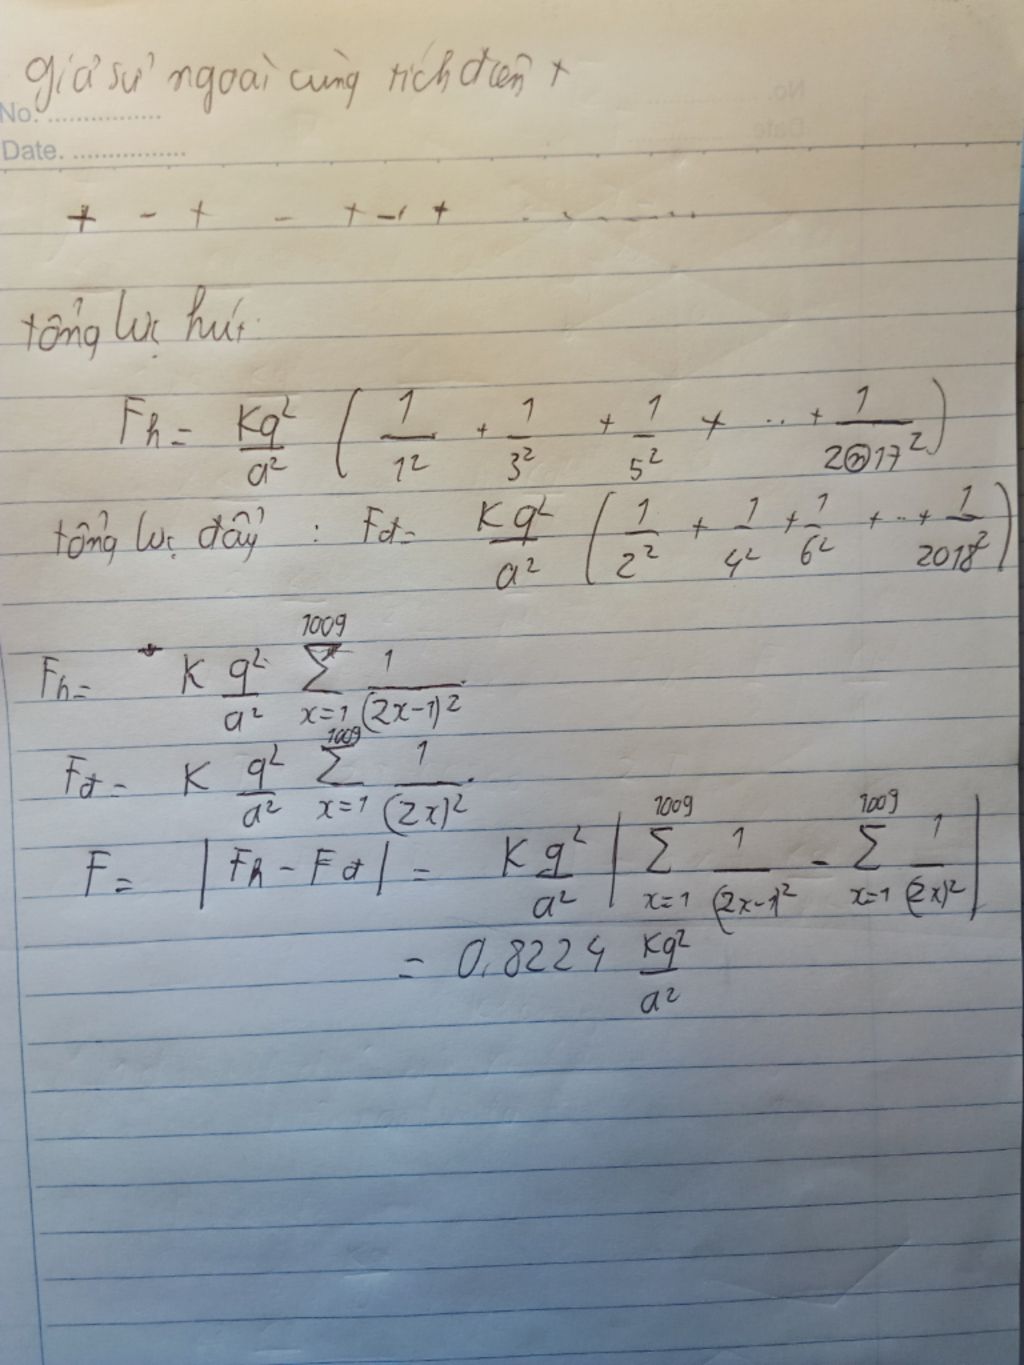 giả sử ngoài cùng tích điện +
No. ................
Date. ................
+ - + - + - + ...........
tổng lực hút:
Fh = Kq²/a² (1/1² + 1/3² + 1/5² + ... + 1/2017²)
tổng lực đẩy : Fđ = Kq²/a² (1/2² + 1/4² + 1/6² + ... + 1/2018²)
Fh = K q²/a² ∑_{x=1}^{1009} 1/(2x-1)²
Fđ = K q²/a² ∑_{x=1}^{1009} 1/(2x)²
F = |Fh - Fđ| = K q²/a² |∑_{x=1}^{1009} 1/(2x-1)² - ∑_{x=1}^{1009} 1/(2x)²|
= 0,8224 Kq²/a²